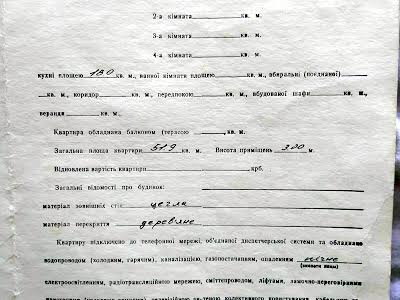 2-а кімната кв. м.
3-а кімната кв. м.
4-а кімната кв. м.
кухні площею 13.0 кв. м., ванної кімнати площею кв. м., вбиральні (поєднаної)
кв. м., коридор кв. м., передпокою кв. м., вбудованої шафи кв. м.,
веранди кв. м.
Квартира обладнана балконом (терасою , кв. м.
Загальна площа квартири 51.9 кв. м. Висота приміщень 3.00 м.
Відновлена вартість квартири крб.
Загальні відомості про будинок:
матеріал зовнішніх стін цегла
матеріал перекриття деревяне
Квартиру підключено до телефонної мережі, об'єднаної диспетчерської системи та обладнано
водопроводом (холодним, гарячим), каналізацією, газопостачанням, опаленням пічне
електроосвітленням, радіотрансляційною мережею, сміттєпроводом, ліфтами, замочно-переговорним
колективного користування,